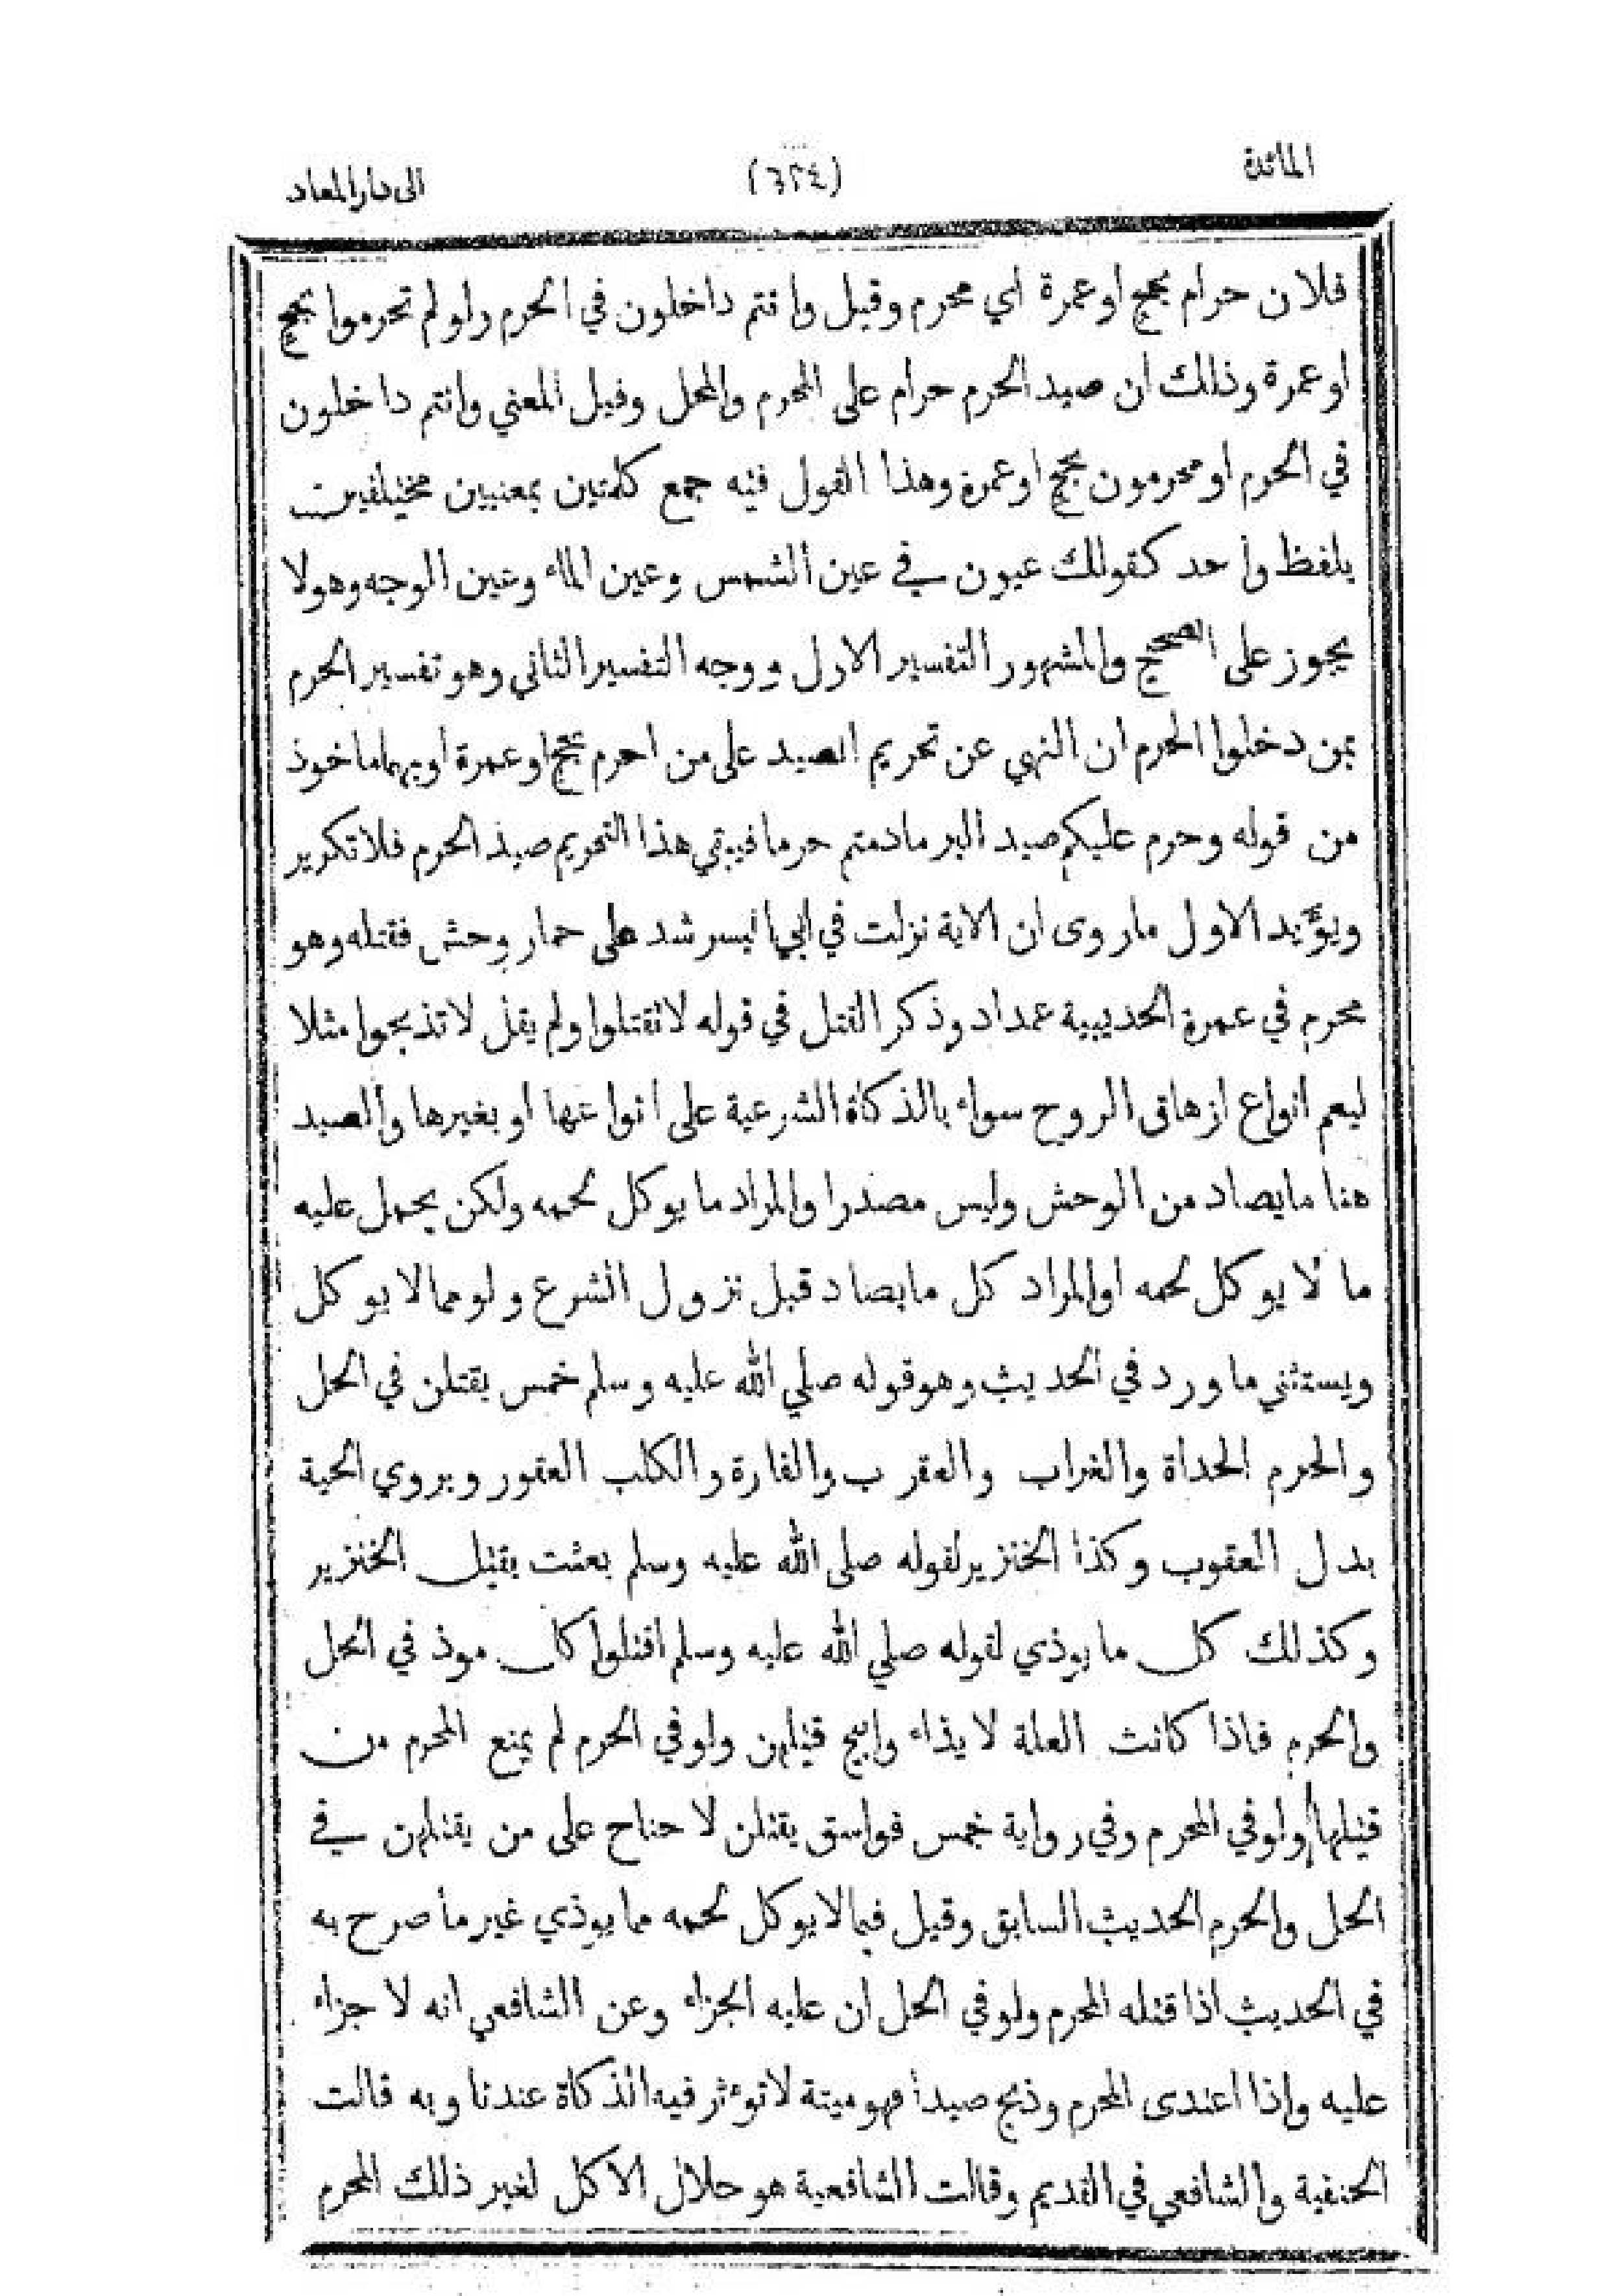 المائدة
(٣٢٤)
الى دار المعاد
فلان حرام بحج او عمرة اي محرم وقيل وانتم داخلون في الحرم ولو لم تحرموا بحج
او عمرة وذلك ان صيد الحرم حرام على المحرم والمحل وقيل المعني وانتم داخلون
في الحرم او محرمون بحج او عمرة وهذا القول فيه جمع كلمتين بمعنيين مختلفين
بلفظ واحد كقولك عيون في عين الشمس وعين الماء وعين الوجه وهو لا
يجوز على الصحيح والمشهور التفسير الاول ووجه التفسير الثاني وهو تفسير الحرم
بمن دخلوا الحرم ان النهي عن تحريم الصيد على من احرم بحج او عمرة او بهما ماخوذ
من قوله وحرم عليكم صيد البر مادمتم حرما فيبقي هذا التحريم صيد الحرم فلا تكرير
ويؤيد الاول ماروى ان الاية نزلت في ابي اليسر شد على حمار وحش فقتله وهو
محرم في عمرة الحديبية عمداد وذكر القتل في قوله لا تقتلوا ولم يقل لا تذبحوا مثلا
ليعم انواع ازهاق الروح سواء بالذكاة الشرعية على انواعها او بغيرها والصيد
هنا ما يصاد من الوحش وليس مصدرا والمراد ما يوكل لحمه ولكن يحمل عليه
ما لا يوكل لحمه او المراد كل ما يصاد قبل نزول الشرع ولو مما لا يوكل
ويستثني ما ورد في الحديث وهو قوله صلي الله عليه وسلم خمس يقتلن في الحل
والحرم الحداة والغراب والعقرب والفارة والكلب العقور ويروي الحية
بدل العقوب وكذا الخنزير لقوله صلى الله عليه وسلم بعثت بقتل الخنزير
وكذلك كل ما يوذي لقوله صلي الله عليه وسلم اقتلوا كل موذ في الحل
والحرم فاذا كانت العلة لا يذاء وابيح قتلهن ولو في الحرم لم يمنع المحرم من
قتلها ولو في المحرم وفي رواية خمس فواسق يقتلن لا حناح على من يقتلهن في
الحل والحرم الحديث السابق وقيل فيما لا يوكل لحمه مما يوذي غير ما صرح به
في الحديث اذا قتله المحرم ولو في الحل ان عليه الجزاء وعن الشافعي انه لا جزاء
عليه واذا اعتدى المحرم وذبح صيدا فهو ميتة لا توءثر فيه الذكاة عندنا وبه قالت
الحنفية والشافعي في القديم وقالت الشافعية هو حلال الاكل لغير ذلك المحرم